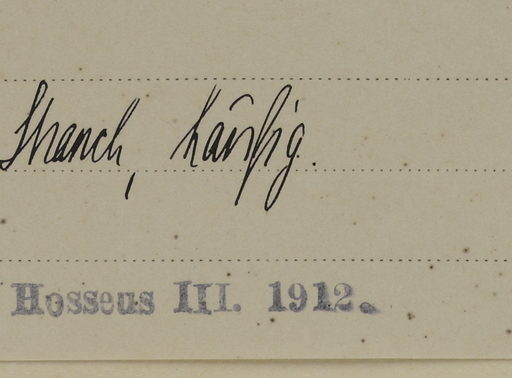 Strauch, häufig.
Hosseus III. 1912.